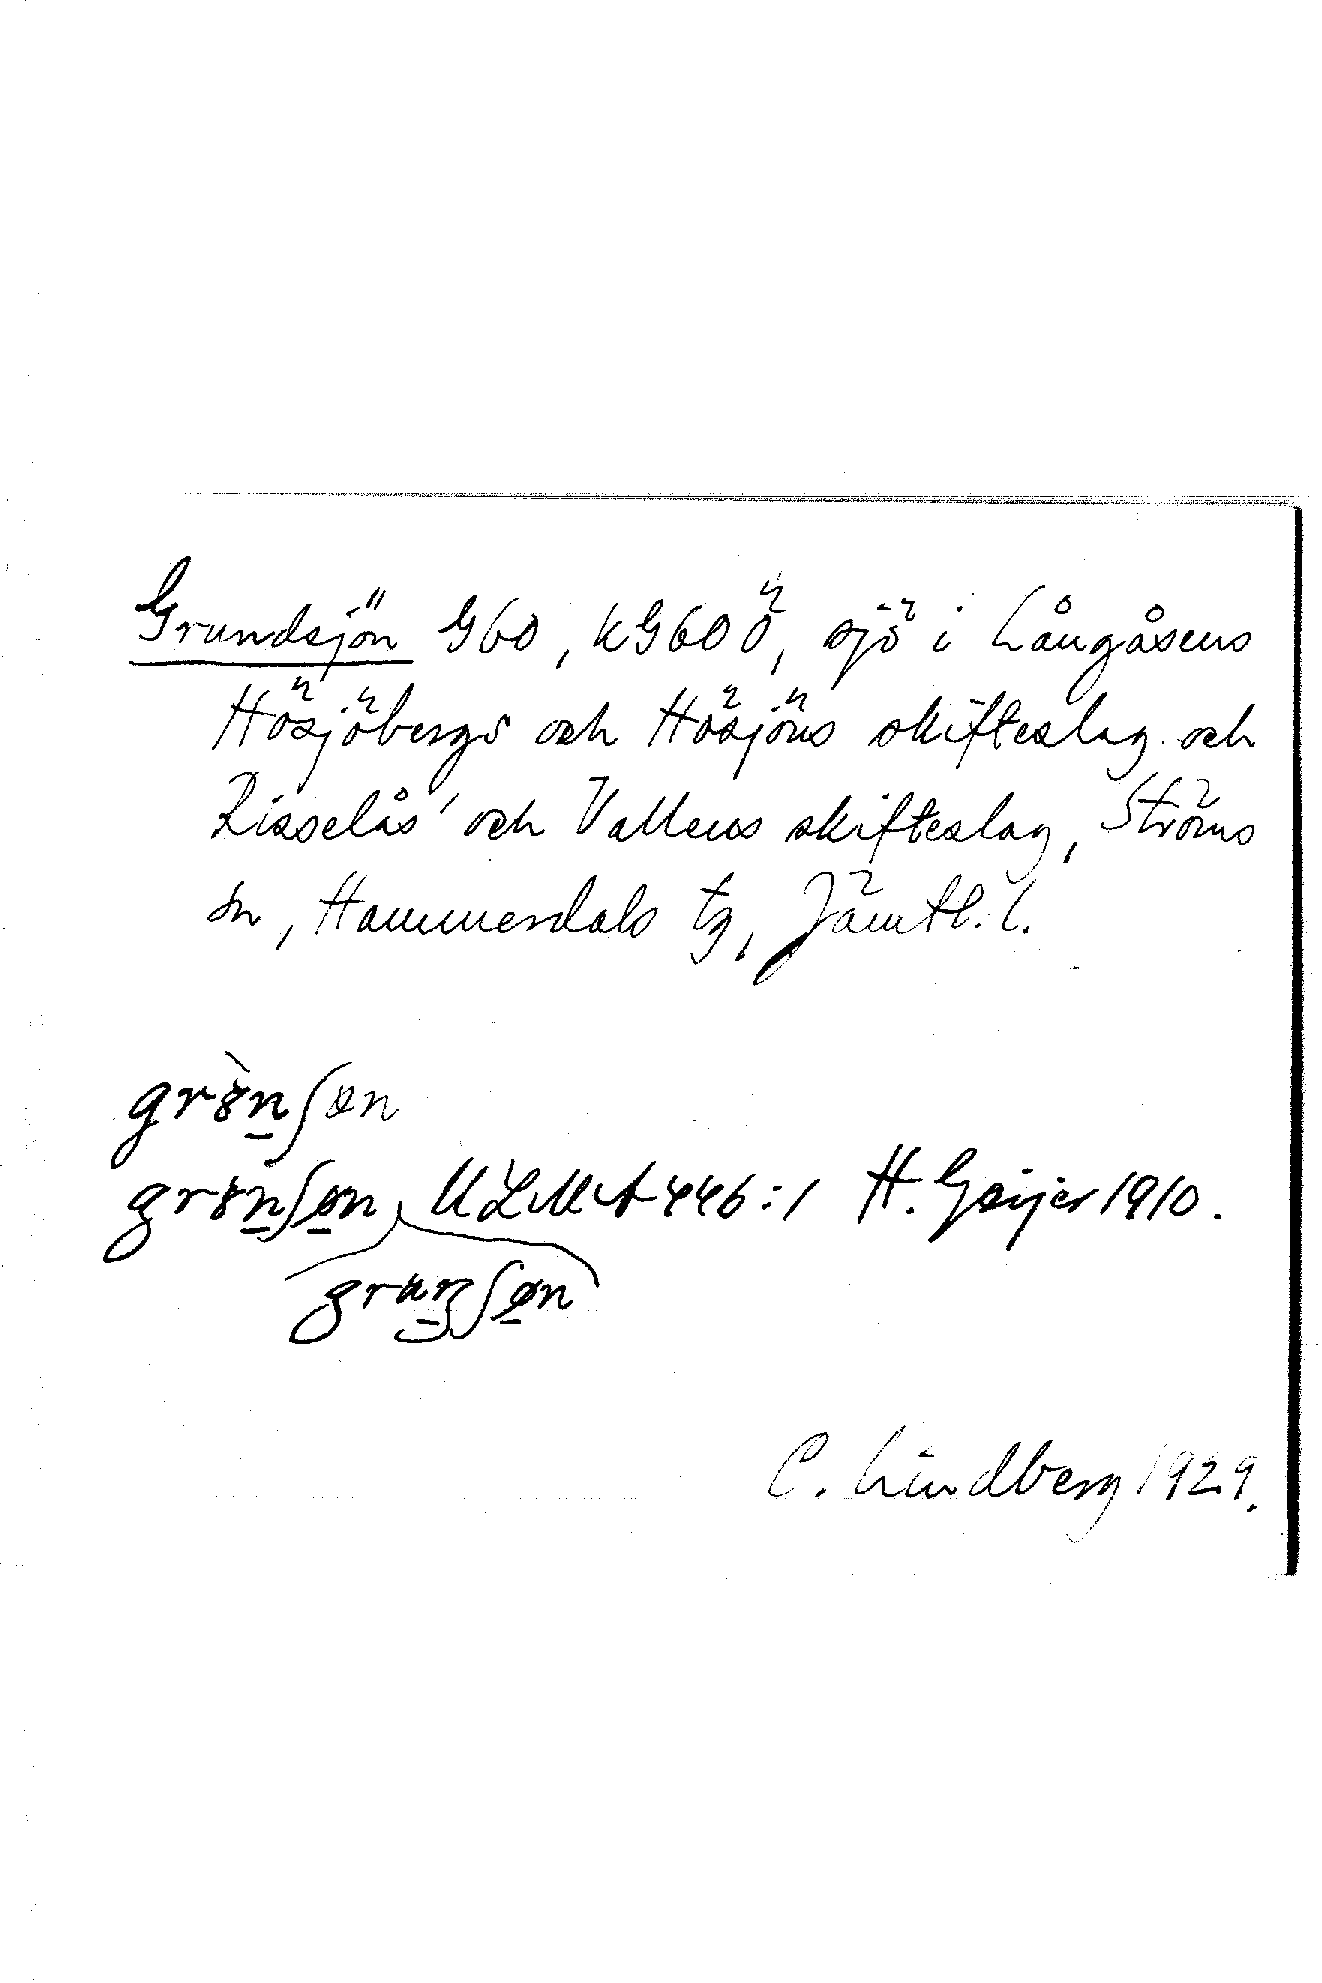 Grundsjön G60, KG60Ö, sjö i Långåsens
Hösjöbergs och Hösjöns skifteslag och
Risselås' och Vallens skifteslag, Ströms
sn, Hammerdals tg, Jämtl. l.
ULMA 446:1 H. Geijer 1910.
C. Lindberg 1929.